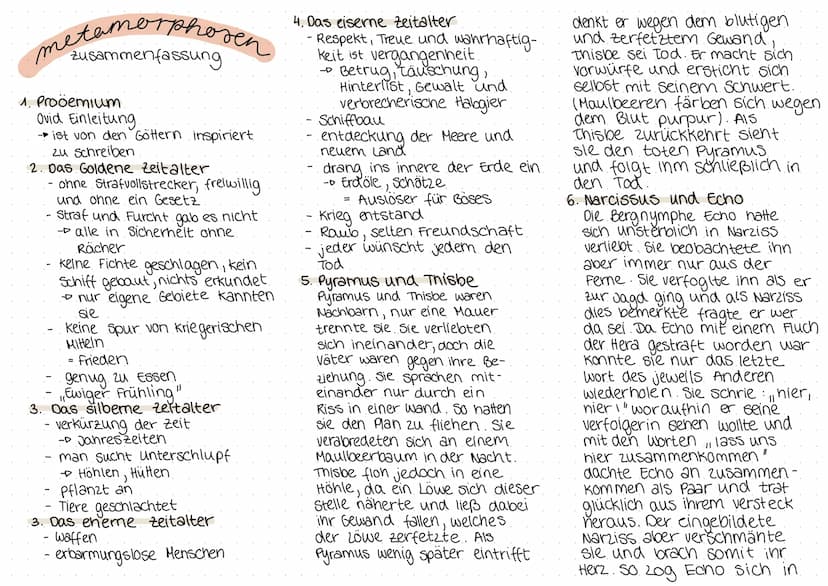 metamorphosen
zusammenfassung
1. Proöemium
Ovid Einleitung
→ ist von den Göttern inspiriert
zu schreiben
2. Das Goldene Zeitalter
- ohne Strafvollstrecker, freiwillig
und ohne ein Gesetz
- Straf und Furcht gab es nicht
→ alle in Sicherheit ohne
Rächer
- keine Fichte geschlagen, kein
Schiff gebaut, nichts erkundet
→ nur eigene Gebiete kannten
sie
- keine Spur von kriegerischen
Mitteln
= Frieden
- genug zu Essen
- „Ewiger Frühling"
3. Das silberne Zeitalter
- verkürzung der Zeit
→ Jahreszeiten
- man sucht unterschlupf
→ Höhlen, Hütten
- pflanzt an
- Tiere geschlachtet
3. Das eherne Zeitalter
- Waffen
- erbarmungslose Menschen
4. Das eiserne Zeitalter
- Respekt, Treue und Wahrhaftig-
keit ist vergangenheit
→ Betrug, Täuschung,
Hinterlist, Gewalt und
verbrecherische Habgier
- Schiffbau
- entdeckung der Meere und
neuem Land
- drang ins innere der Erde ein
→ Erdöle, Schätze
= Auslöser für Böses
- Krieg entstand
- Raub, selten Freundschaft
- jeder wünscht jedem den
Tod
5. Pyramus und Thisbe
Pyramus und Thisbe waren
Nachbarn, nur eine Mauer
trennte sie. Sie verliebten
sich ineinander, doch die
Väter waren gegen ihre Be-
ziehung. Sie sprachen mit-
einander nur durch ein
Riss in einer Wand. So hatten
sie den Plan zu fliehen. Sie
verabredeten sich an einem
Maulbeerbaum in der Nacht.
Thisbe floh jedoch in eine
Höhle, da ein Löwe sich dieser
Stelle näherte und ließ dabei
ihr Gewand fallen, welches
der Löwe zerfetzte. Als
Pyramus wenig später eintrifft
denkt er wegen dem blutigen
und zerfetztem Gewand,
Thisbe sei Tod. Er macht sich
vorwürfe und ersticht sich
selbst mit seinem Schwert.
(Maulbeeren färben sich wegen
dem Blut purpur). Als
Thisbe zurückkehrt sieht
sie den toten Pyramus
und folgt ihm schließlich in
den Tod.
6. Narcissus und Echo
Die Bergnymphe Echo hatte
sich unsterblich in Narziss
verliebt. Sie beobachtete ihn
aber immer nur aus der
Ferne. Sie verfoglte ihn als er
zur Jagd ging und als Narziss
dies bemerkte fragte er wer
da sei. Da Echo mit einem Fluch
der Hera gestraft worden war
konnte sie nur das letzte
Wort des jeweils Anderen
wiederholen. Sie schrie: „hier,
hier!" woraufhin er seine
verfolgerin sehen wollte und
mit den Worten „lass uns
hier zusammenkommen"
dachte Echo an zusammen-
kommen als Paar und trat
glücklich aus ihrem versteck
heraus. Der eingebildete
Narziss aber verschmähte
sie und brach somit ihr
Herz. So zog Echo sich in